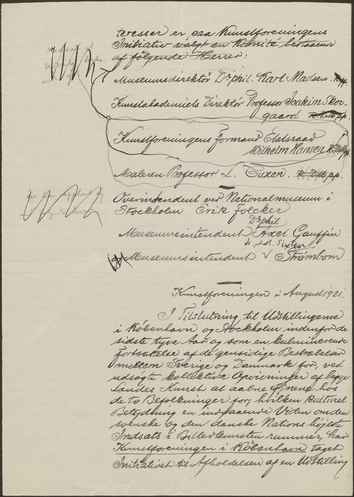 er paa Kunstforeningens
Initiativ valgt en Komité bestaaende
af følgende Herrer:
Museumsdirektør Dr phil. Karl Madsen
Kunstakademiets Direktør Professor Joakim Skov-
gaard
Kunstforeningens Formand Etatsraad
Wilhelm Hansen
Maleren Professor L. Tuxen.
Overintendent ved Nationalmuseum i
Stockholm Erik Folcker
Dr phil
Museumsintendent Axel Gauffin
Museumsintendent Strömbom
Kunstforeningen i August 1921.
I Tilslutning til Udstillingerne
i København og Stockholm indenfor de
sidste tyve Aar og som en kulminerende
Fortsættelse af de gensidige Bestræbelser
mellem Sverige og Danmark for, ved
udsøgte kollektive af begge
Landes Kunst at aabne Øjnene hos
de to Befolkninger for, hvilken kulturel
Betydning en indgaaende Viden om den
svenske og den danske Nations højeste
Indsats i Billedkunsten rummer, har
Kunstforeningen i København taget
Initiativet til Afholdelsen af en Udstilling